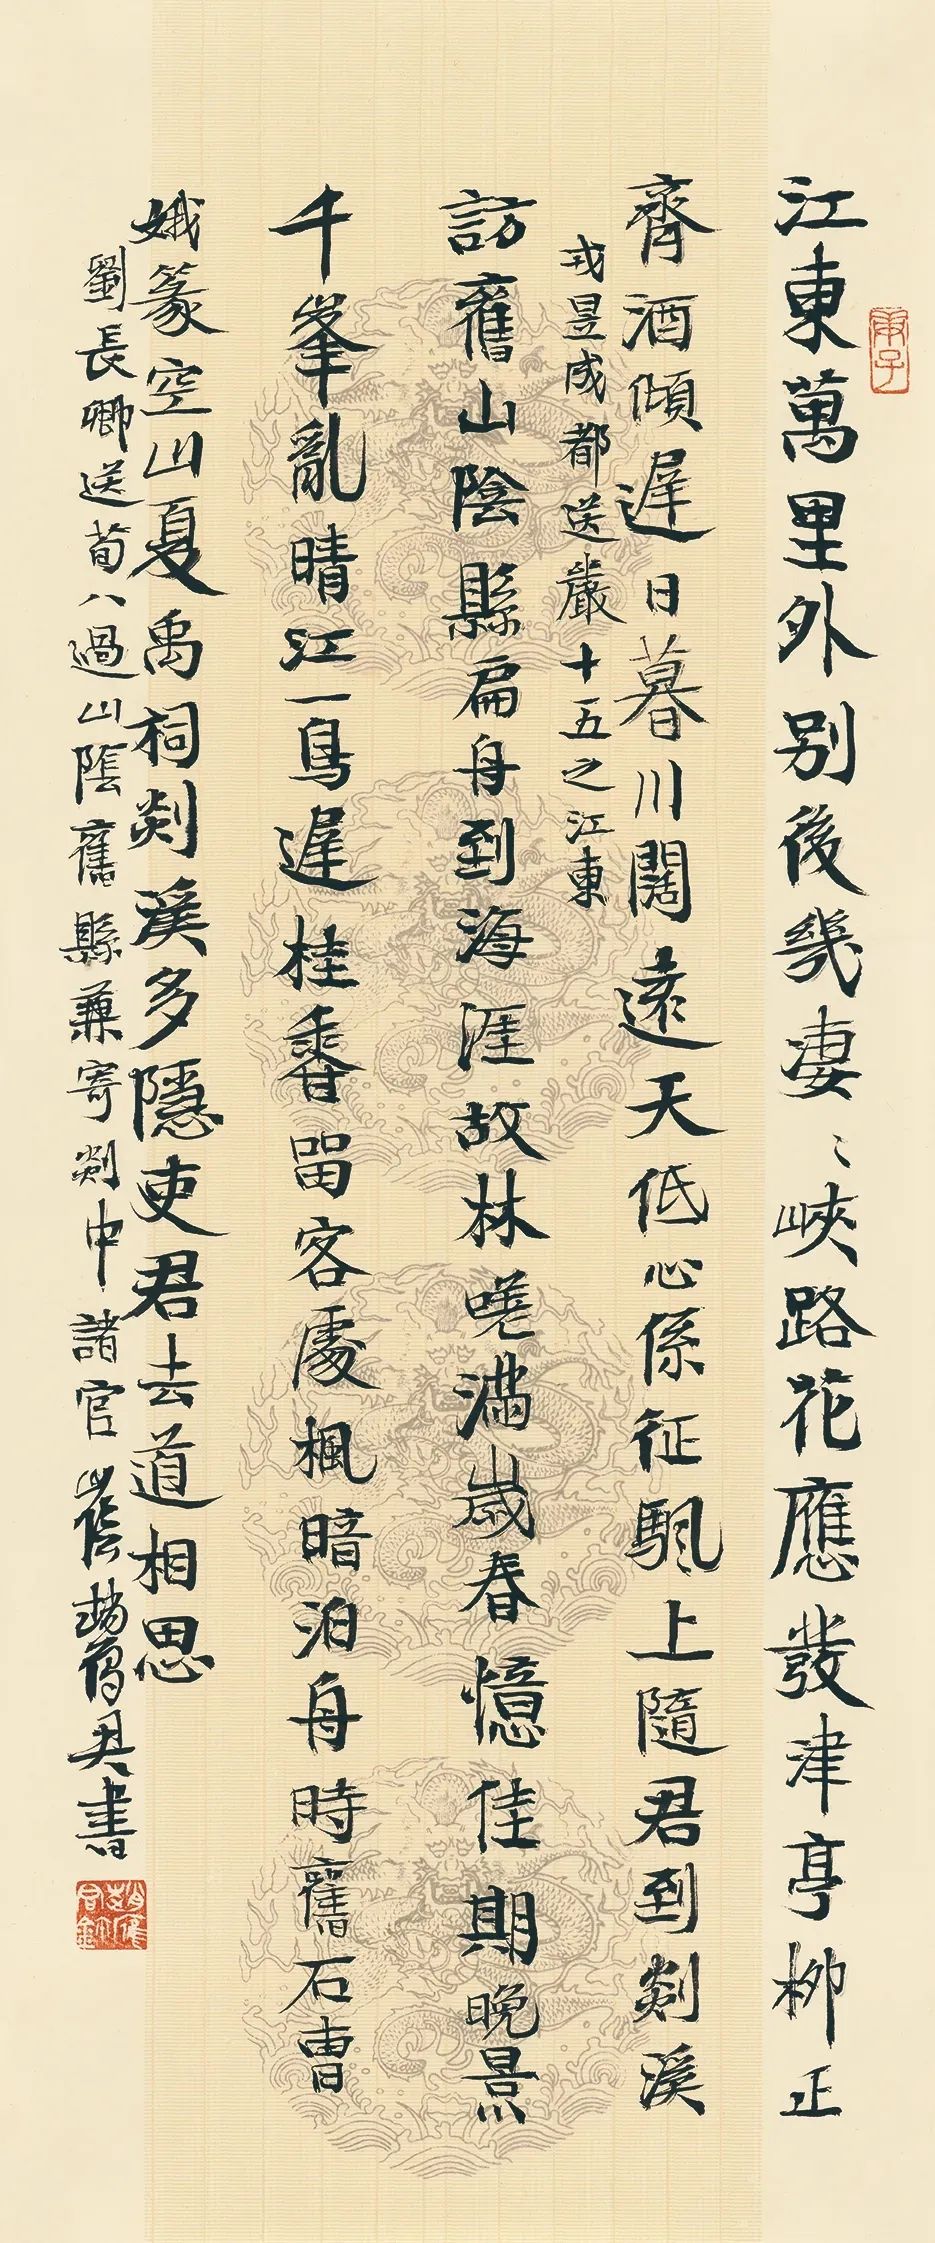 江東萬里外别後幾凄〻峽路花應發津亭柳正
齊酒傾遲日暮川闊遠天低心係征颿上隨君到剡溪
戎昱成都送嚴十五之江東
訪舊山陰縣扁舟到海涯故林嗟滿歲春憶佳期晚景
千峯亂晴江一鳥遲桂香留客處楓暗泊舟時舊石曹
娥篆空山夏禹祠剡溪多隱吏君去道相思
劉長卿送荀八過山陰舊縣兼寄剡中諸官
書
庚子